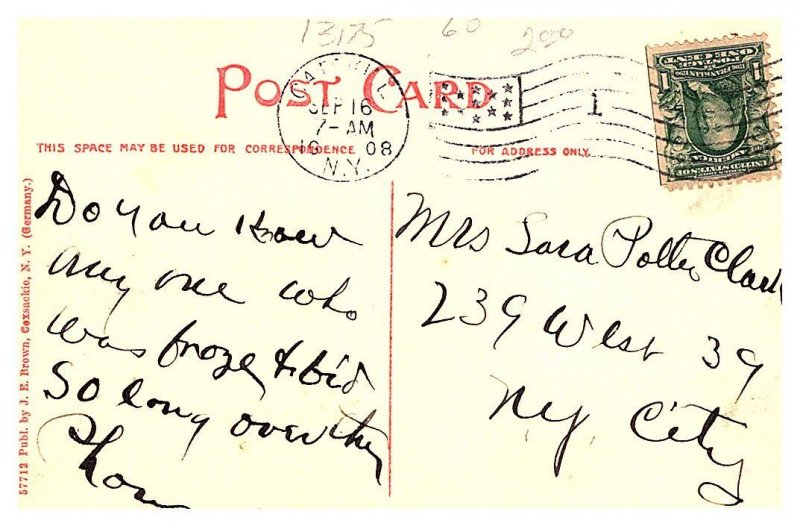 13175 60 200
POST CARD
CATSKILL
SEP 16
7-AM
08
N.Y.
1
POSTAGE
ONE CENT
1 1
THIS SPACE MAY BE USED FOR CORRESPONDENCE
FOR ADDRESS ONLY.
57712 Publ. by J. E. Brown, Coxsackie, N. Y. (Germany.)
Do you know
any one who
was froze & bid
So long over the
Phone
Mrs Sara Potter Clark
239 West 39
NY City